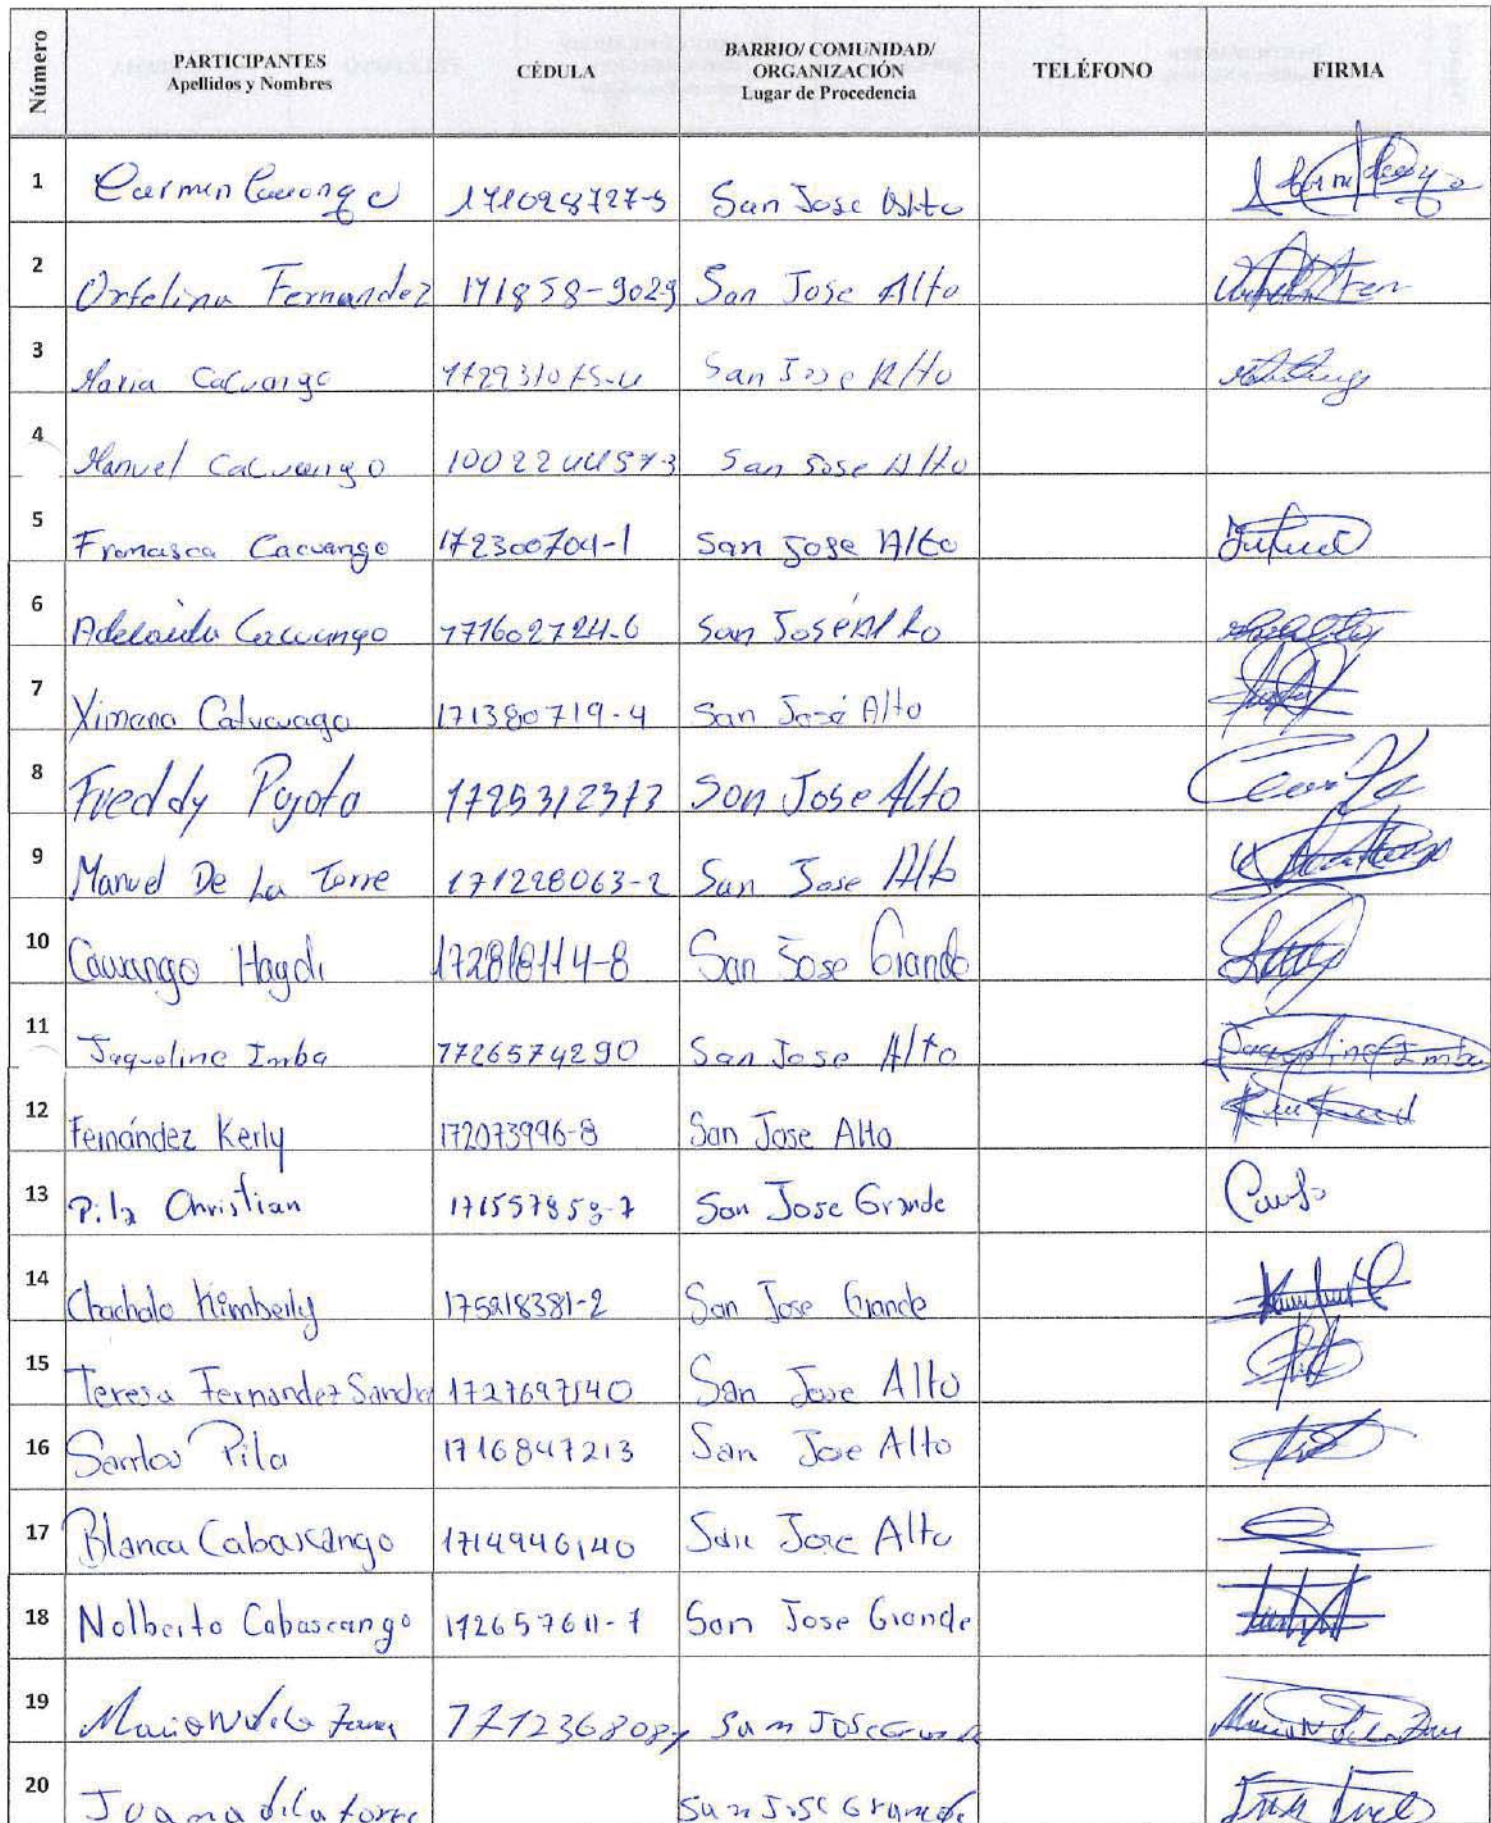 Número PARTICIPANTES Apellidos y Nombres CÉDULA BARRIO/ COMUNIDAD/ ORGANIZACIÓN Lugar de Procedencia TELÉFONO FIRMA
1 Carmen San Jose Alto
2 Orfelina Fernandez 171858-9029 San Jose Alto
3 Maria Cacuango San Jose Alto
4 Manuel Cacuango San Jose Alto
5 Francisca Cacuango 172300704-1 San Jose Alto
6 Adelaida Cacuango 171602724-6 San José Alto
7 Ximena 171380719-4 San José Alto
8 Freddy Pujota 1725312373 San Jose Alto
9 Manuel De La Torre 171228063-2 San Jose Alto
10 Cacuango Haydi San Jose Grande
11 Jaqueline Imba 1726574290 San Jose Alto Jaqueline Imba
12 Fernández Kerly 172073996-8 San Jose Alto
13 Pila Christian San Jose Grande
14 Chachalo Kimberly 175218381-2 San Jose Grande
15 Teresa Fernandez Sandra 1727697140 San Jose Alto
16 Pila 1716847213 San Jose Alto
17 Blanca Cabascango 1714946140 San Jose Alto
18 Nolberto Cabascango 172657611-7 San Jose Grande
19 San Jose Grande
20 Juana de la torre San Jose Grande